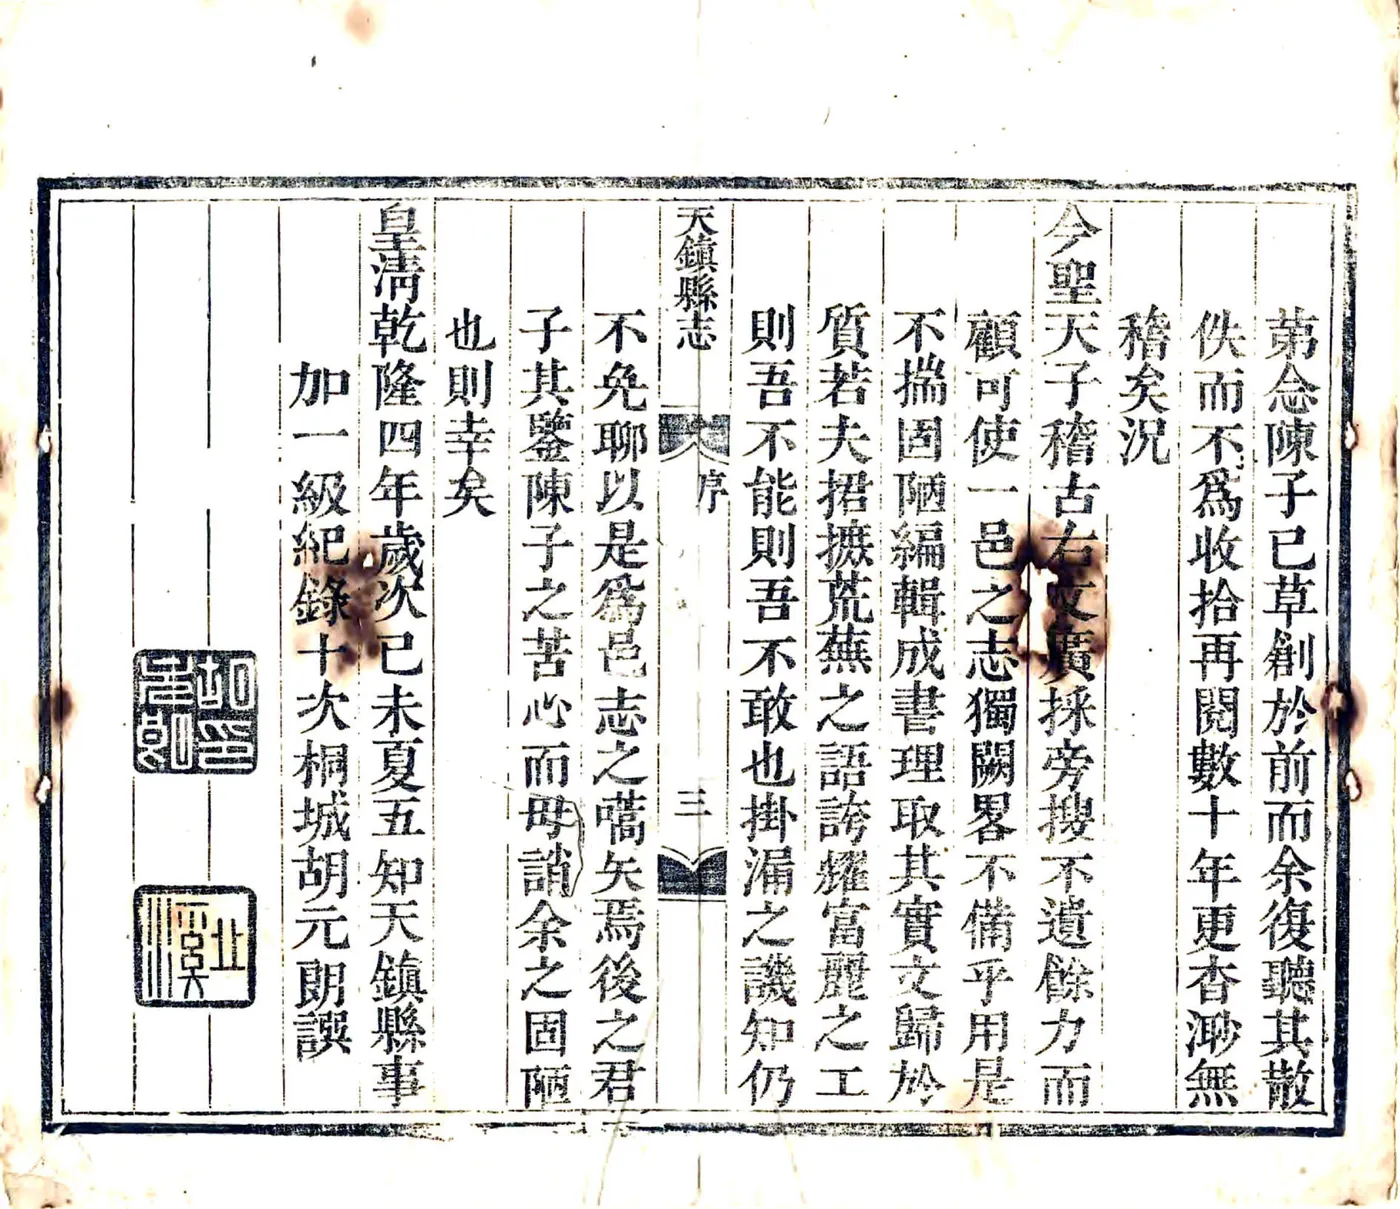 苐念陳子已草創於前而余復聽其散
佚而不爲收拾再閱數十年更杳渺無
稽矣况
今聖天子稽古右文廣採旁搜不遺餘力而
顧可使一邑之志獨闕畧不備乎用是
不揣固陋編輯成書理取其實文歸於
質若夫招摭荒蕪之語誇耀富麗之工
則吾不能則吾不敢也掛漏之譏知仍
天鎮縣志
序
三
不免聊以是爲邑志之嚆矢焉後之君
子其鑒陳子之苦心而毋誚余之固陋
也則幸矣
皇清乾隆四年歲次己未夏五知天鎮縣事
加一級紀錄十次桐城胡元朗譔